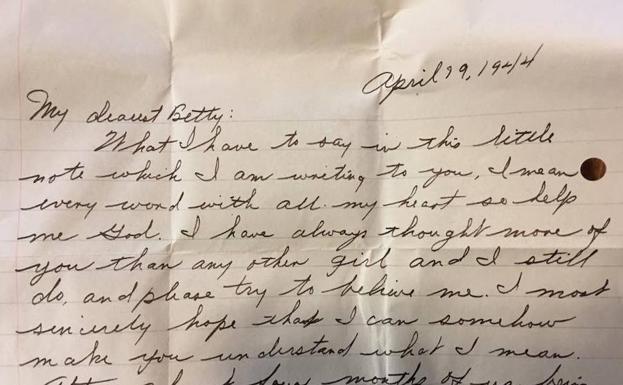 April 29, 1944
My dearest Betty:
What I have to say in this little
note which I am writing to you, I mean
every word with all my heart so help
me God. I have always thought more of
you than any other girl and I still
do, and please try to believe me. I most
sincerely hope that I can somehow
make you understand what I mean.
months of